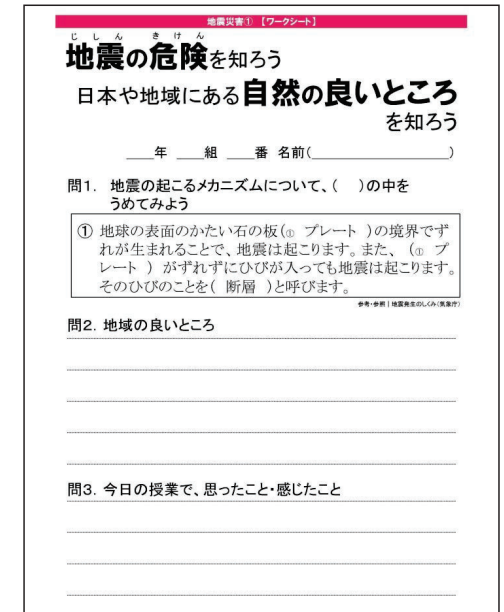 地震災害① 【ワークシート】
じしん きけん
地震の危険を知ろう
日本や地域にある自然の良いところ
を知ろう
____年 ____組 ____番 名前(____________________)
問1. 地震の起こるメカニズムについて、( )の中を
うめてみよう
① 地球の表面のかたい石の板(① プレート )の境界でず
れが生まれることで、地震は起こります。また、(① プ
レート ) がずれずにひびが入っても地震は起こります。
そのひびのことを( 断層 )と呼びます。
参考・参照|地震発生のしくみ(気象庁)
問2. 地域の良いところ
問3. 今日の授業で、思ったこと・感じたこと